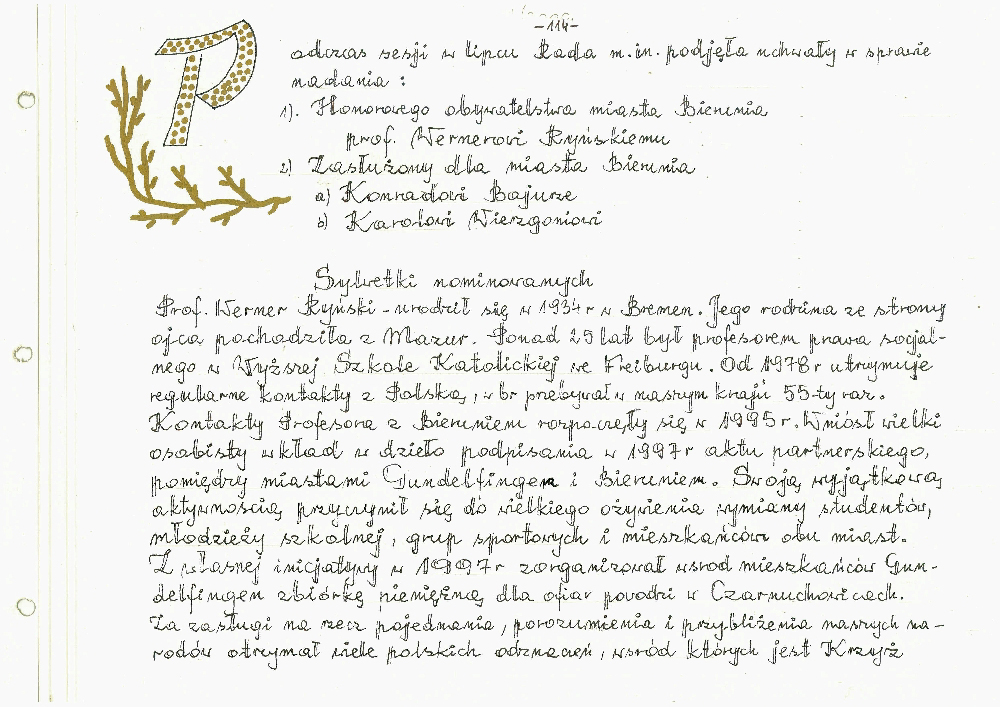 -114-
Podczas sesji w lipcu Rada m.in. podjęła uchwały w sprawie
nadania :
1). Honorowego obywatelstwa miasta Bierunia
prof. Wernerowi Ryńskiemu
2) Zasłużony dla miasta Bierunia
a) Konradowi Bajurze
b) Karolowi Wierzgoniowi
Sylwetki nominowanych
Prof. Werner Ryński - urodził się w 1934 r w Bremen. Jego rodzina ze strony
ojca pochodziła z Mazur. Ponad 25 lat był profesorem prawa socjal-
nego w Wyższej Szkole Katolickiej we Freiburgu. Od 1978 r utrzymuje
regularne kontakty z Polską, w br przebywał w naszym kraju 55-ty raz.
Kontakty Profesora z Bieruniem rozpoczęły się w 1995 r. Wniósł wielki
osobisty wkład w dzieło podpisania w 1997 r aktu partnerskiego,
pomiędzy miastami Gundelfingen i Bieruniem. Swoją wyjątkową
aktywnością przyczynił się do wielkiego ożywienia wymiany studentów,
młodzieży szkolnej, grup sportowych i mieszkańców obu miast.
Z własnej inicjatywy w 1997 r zorganizował wsrod mieszkańców Gun-
delfingen zbiórkę pieniężną dla ofiar powodzi w Czarnuchowicach.
Za zasługi na rzecz pojednania, porozumienia i przybliżenia naszych na-
rodów otrzymał wiele polskich odznaczeń, wśród których jest Krzyż